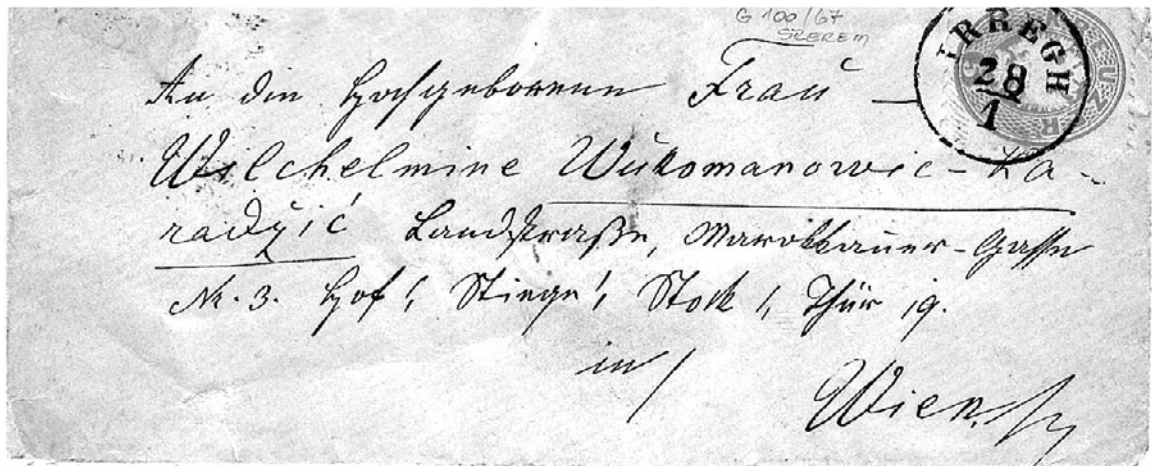 G 100/67
SZEREM
IRREGH
28
1
KREUZER
An die Hochgeborene Frau —
Wilchelmine Wukomanowic-Ka-
radžić Landstraße, Marokkauer-Gasse
Nr. 3. Hof 1, Stiege 1, Stock 1, Thür 19.
in/
Wien